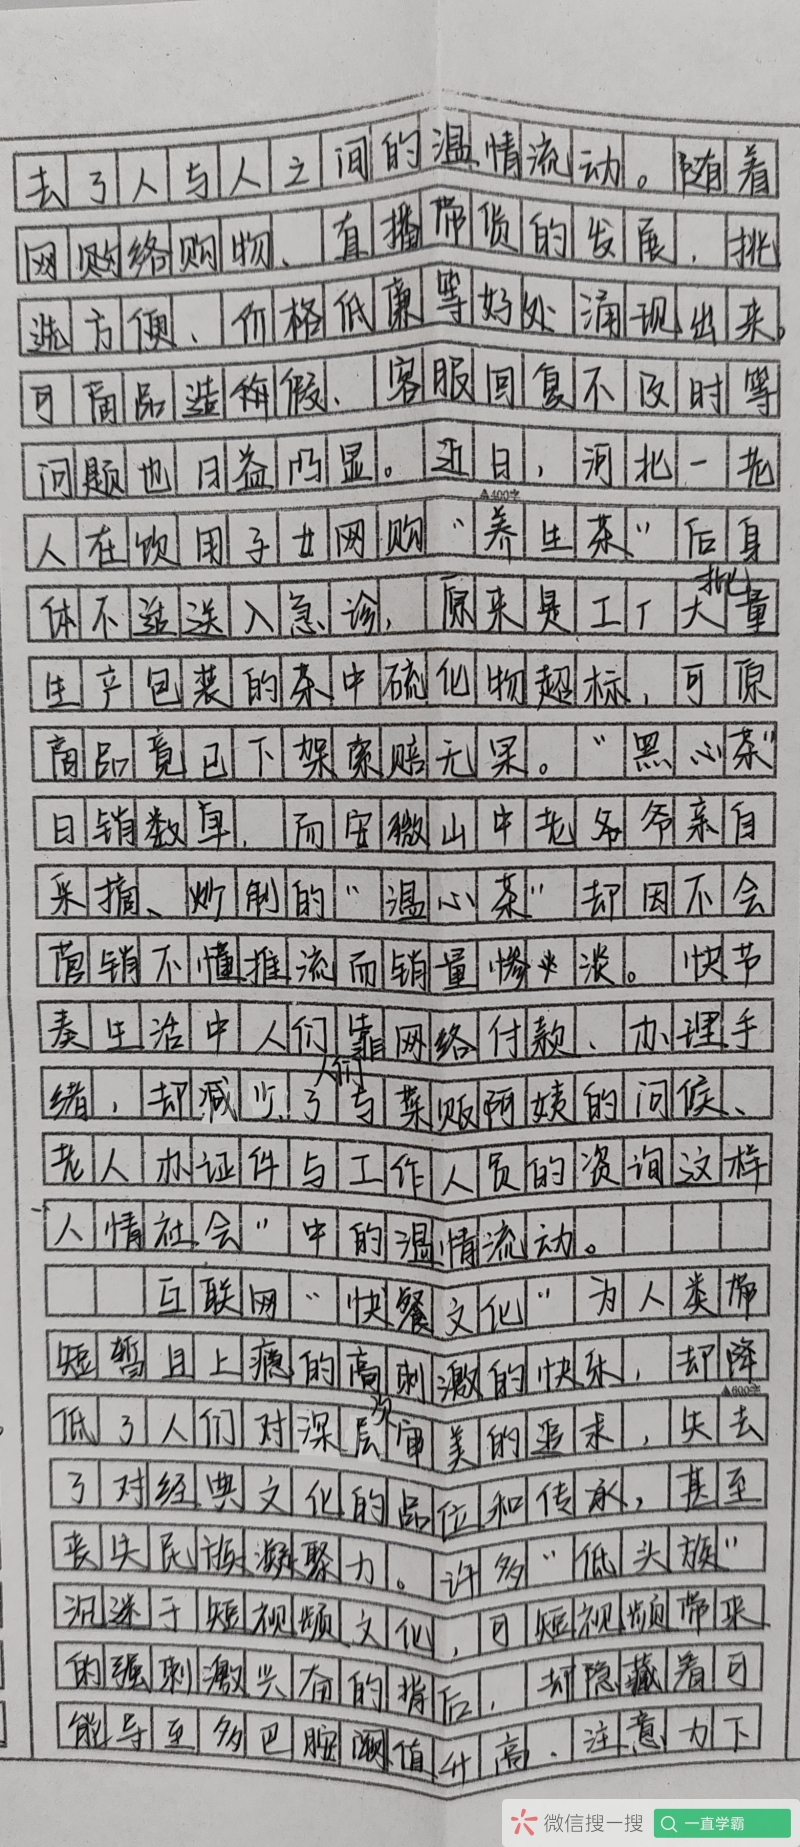 去了人与人之间的温情流动。随着
网购络购物、直播带货的发展，挑
选方便、价格低廉等好处涌现出来。
可商品造稱假、客服回复不及时等
问题也日益凸显。近日，河北一老
▲400字
人在饮用子女网购“养生茶”后身
体不适送入急诊，原来是工厂大批量
生产包装的茶中硫化物超标，可原
商品竟已下架索赔无果。“黑心茶”
日销数单，而安徽山中老爷爷亲自
采摘、炒制的“温心茶”却因不会
营销不懂推流而销量惨淡。快节
奏生活中人们靠网络付款、办理手
绪，却减少了人们与菜贩阿姨的问候、
老人办证件与工作人员的咨询这样
“人情社会”中的温情流动。
互联网“快餐文化”为人类带
短暂且上瘾的高刺激的快乐，却降
▲600字
低了人们对深层次审美的追求，失去
了对经典文化的品位和传承，甚至
丧失民族凝聚力。许多“低头族”
沉迷于短视频文化，可短视频带来
的强刺激兴奋的背后，却隐藏着可
能导至多巴胺阈值升高、注意力下
微信搜一搜 一直学霸